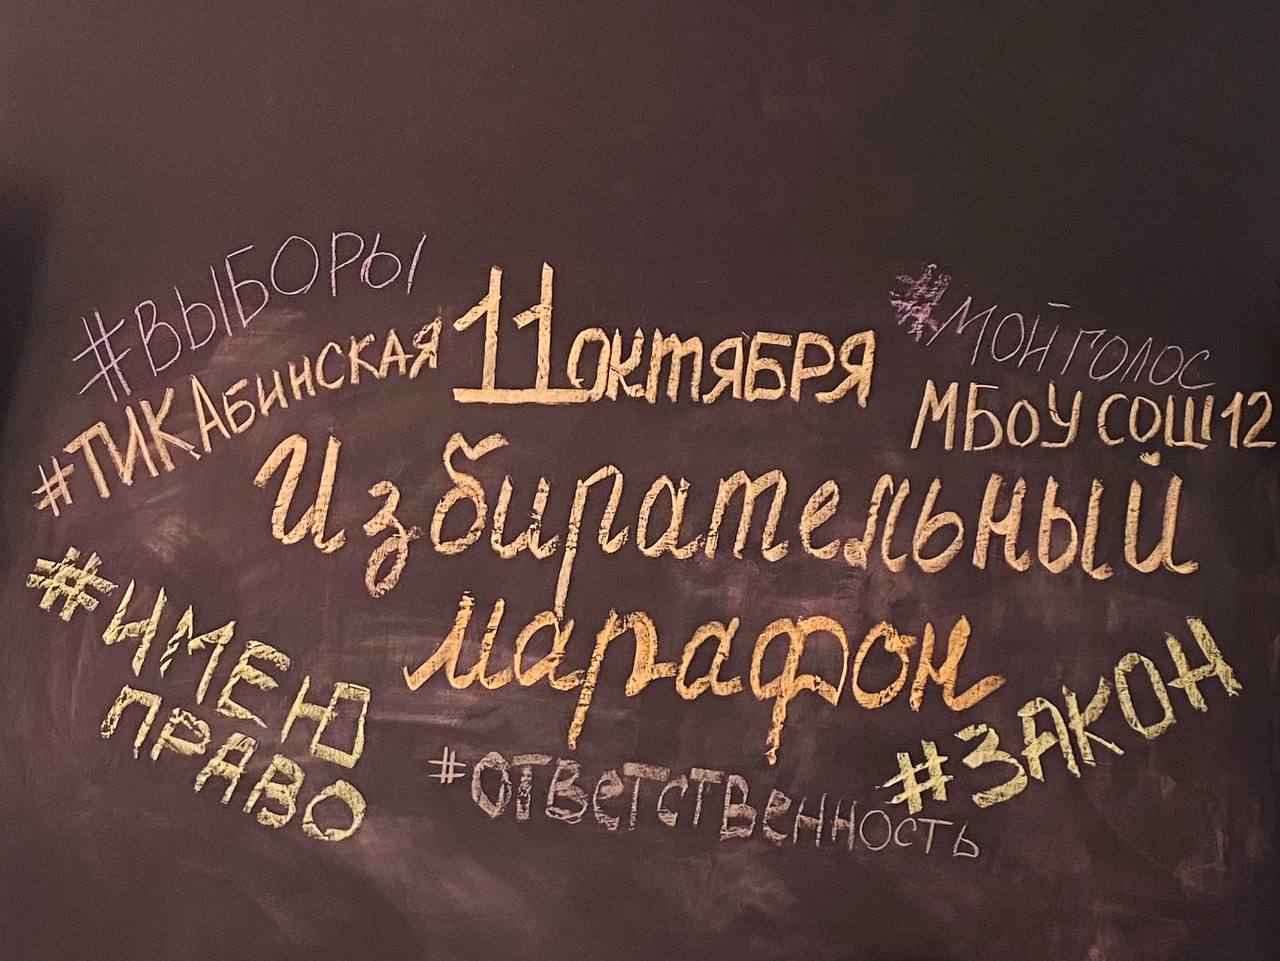 #ВЫБОРЫ
#ТИК Абинская
11 октября
#мой голос
МБОУ СОШ 12
Избирательный
марафон
#ИМЕЮ
ПРАВО
#ответственность
#ЗАКОН